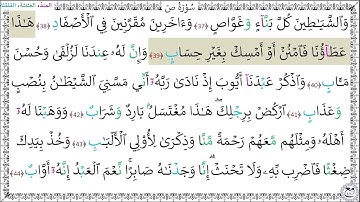 سُورَةُ صٓ
وَٱلشَّيَٰطِينَ كُلَّ بَنَّآءٍ وَغَوَّاصٍ (37) وَءَاخَرِينَ مُقَرَّنِينَ فِي ٱلْأَصْفَادِ (38) هَٰذَا
عَطَآؤُنَا فَٱمْنُنْ أَوْ أَمْسِكْ بِغَيْرِ حِسَابٍ (39) وَإِنَّ لَهُۥ عِندَنَا لَزُلْفَىٰ وَحُسْنَ
مَـَٔابٍ (40) وَٱذْكُرْ عَبْدَنَآ أَيُّوبَ إِذْ نَادَىٰ رَبَّهُۥٓ أَنِّي مَسَّنِيَ ٱلشَّيْطَٰنُ بِنُصْبٍ
وَعَذَابٍ (41) ٱرْكُضْ بِرِجْلِكَ هَٰذَا مُغْتَسَلٌۢ بَارِدٌ وَشَرَابٌ (42) وَوَهَبْنَا لَهُۥٓ
أَهْلَهُۥ وَمِثْلَهُم مَّعَهُمْ رَحْمَةً مِّنَّا وَذِكْرَىٰ لِأُو۟لِي ٱلْأَلْبَٰبِ (43) وَخُذْ بِيَدِكَ
ضِغْثًا فَٱضْرِب بِّهِۦ وَلَا تَحْنَثْ إِنَّا وَجَدْنَٰهُ صَابِرًا نِّعْمَ ٱلْعَبْدُ إِنَّهُۥٓ أَوَّابٌ (44)